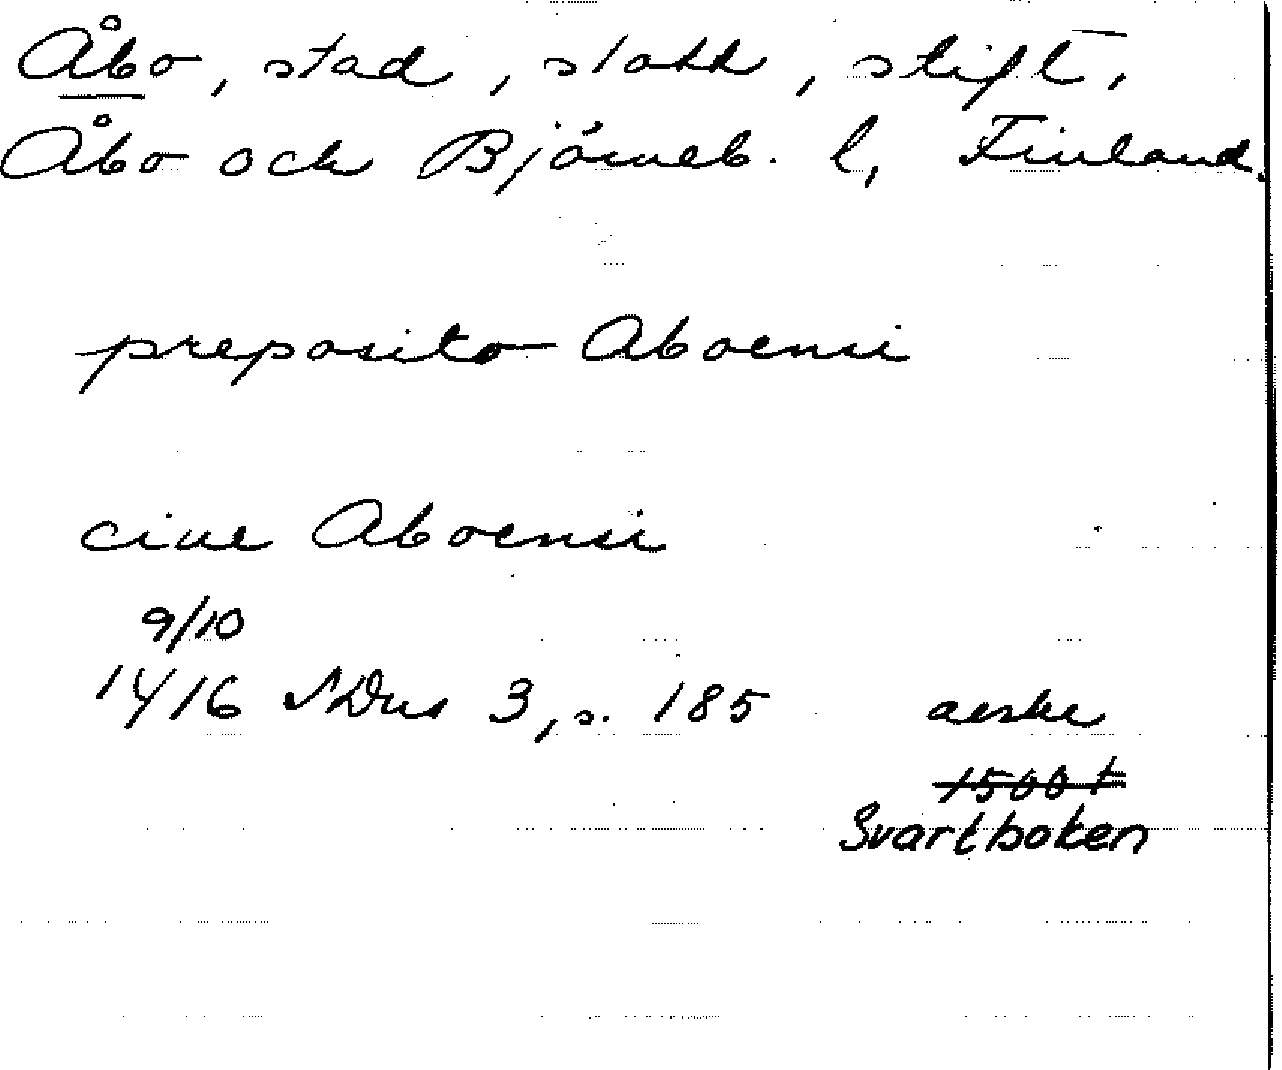 Åbo, stad, slott, stift,
Åbo och Björneb. l, Finland.
preposito Aboensi
ciue Aboensi
9/10
1416 SDns 3, s. 185 aeske
1500 t
Svartboken